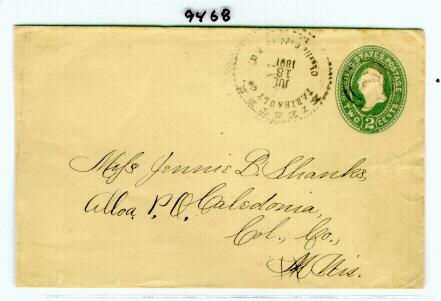 9468
UNITED STATES POSTAGE
TWO 2 CENTS
JUL
18
1891
FARIBAULT CO.
Miss Jennie D. Shanks,
Alloa P.O. Caledonia,
Col., Co.,
Wis.